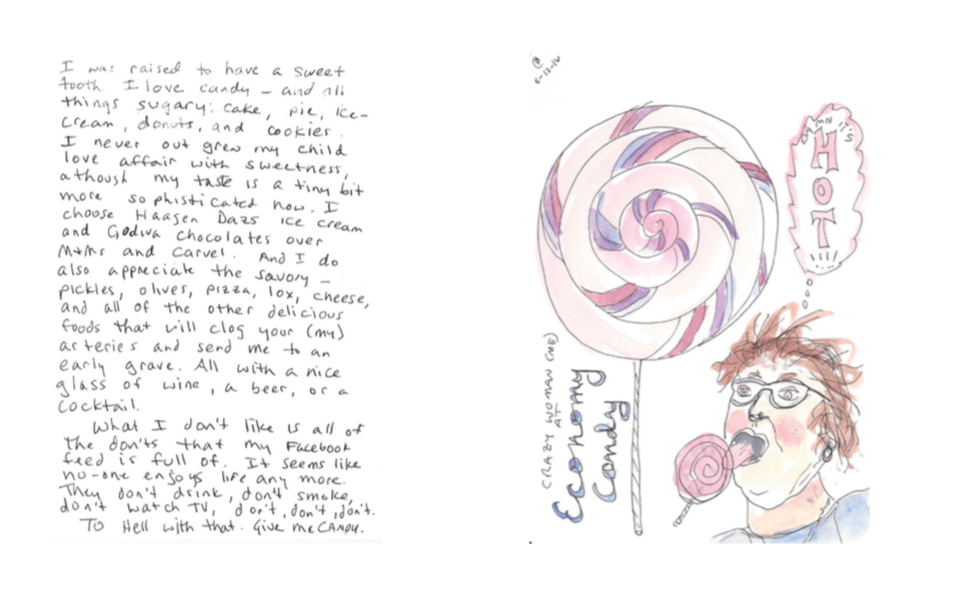 I was raised to have a sweet
tooth. I love candy – and all
things sugary: cake, pie, ice-
cream, donuts, and cookies.
I never out grew my child
love affair with sweetness,
athoush my taste is a tiny bit
more sophisticated now. I
choose Haagen Dazs ice cream
and Godiva chocolates over
M+Ms and Carvel. And I do
also appreciate the savory –
pickles, olives, pizza, lox, cheese,
and all of the other delicious
foods that will clog your (my)
arteries and send me to an
early grave. All with a nice
glass of wine, a beer, or a
cocktail.
What I don't like is all of
the don'ts that my Facebook
feed is full of. It seems like
no-one enjoys life any more.
They don't drink, don't smoke,
don't watch TV, don't, don't, don't.
To Hell with that. Give me CANDY.
DAMN IT'S
HOT
!!!!
CRAZY WOMAN (ME)
AT
Economy
Candy